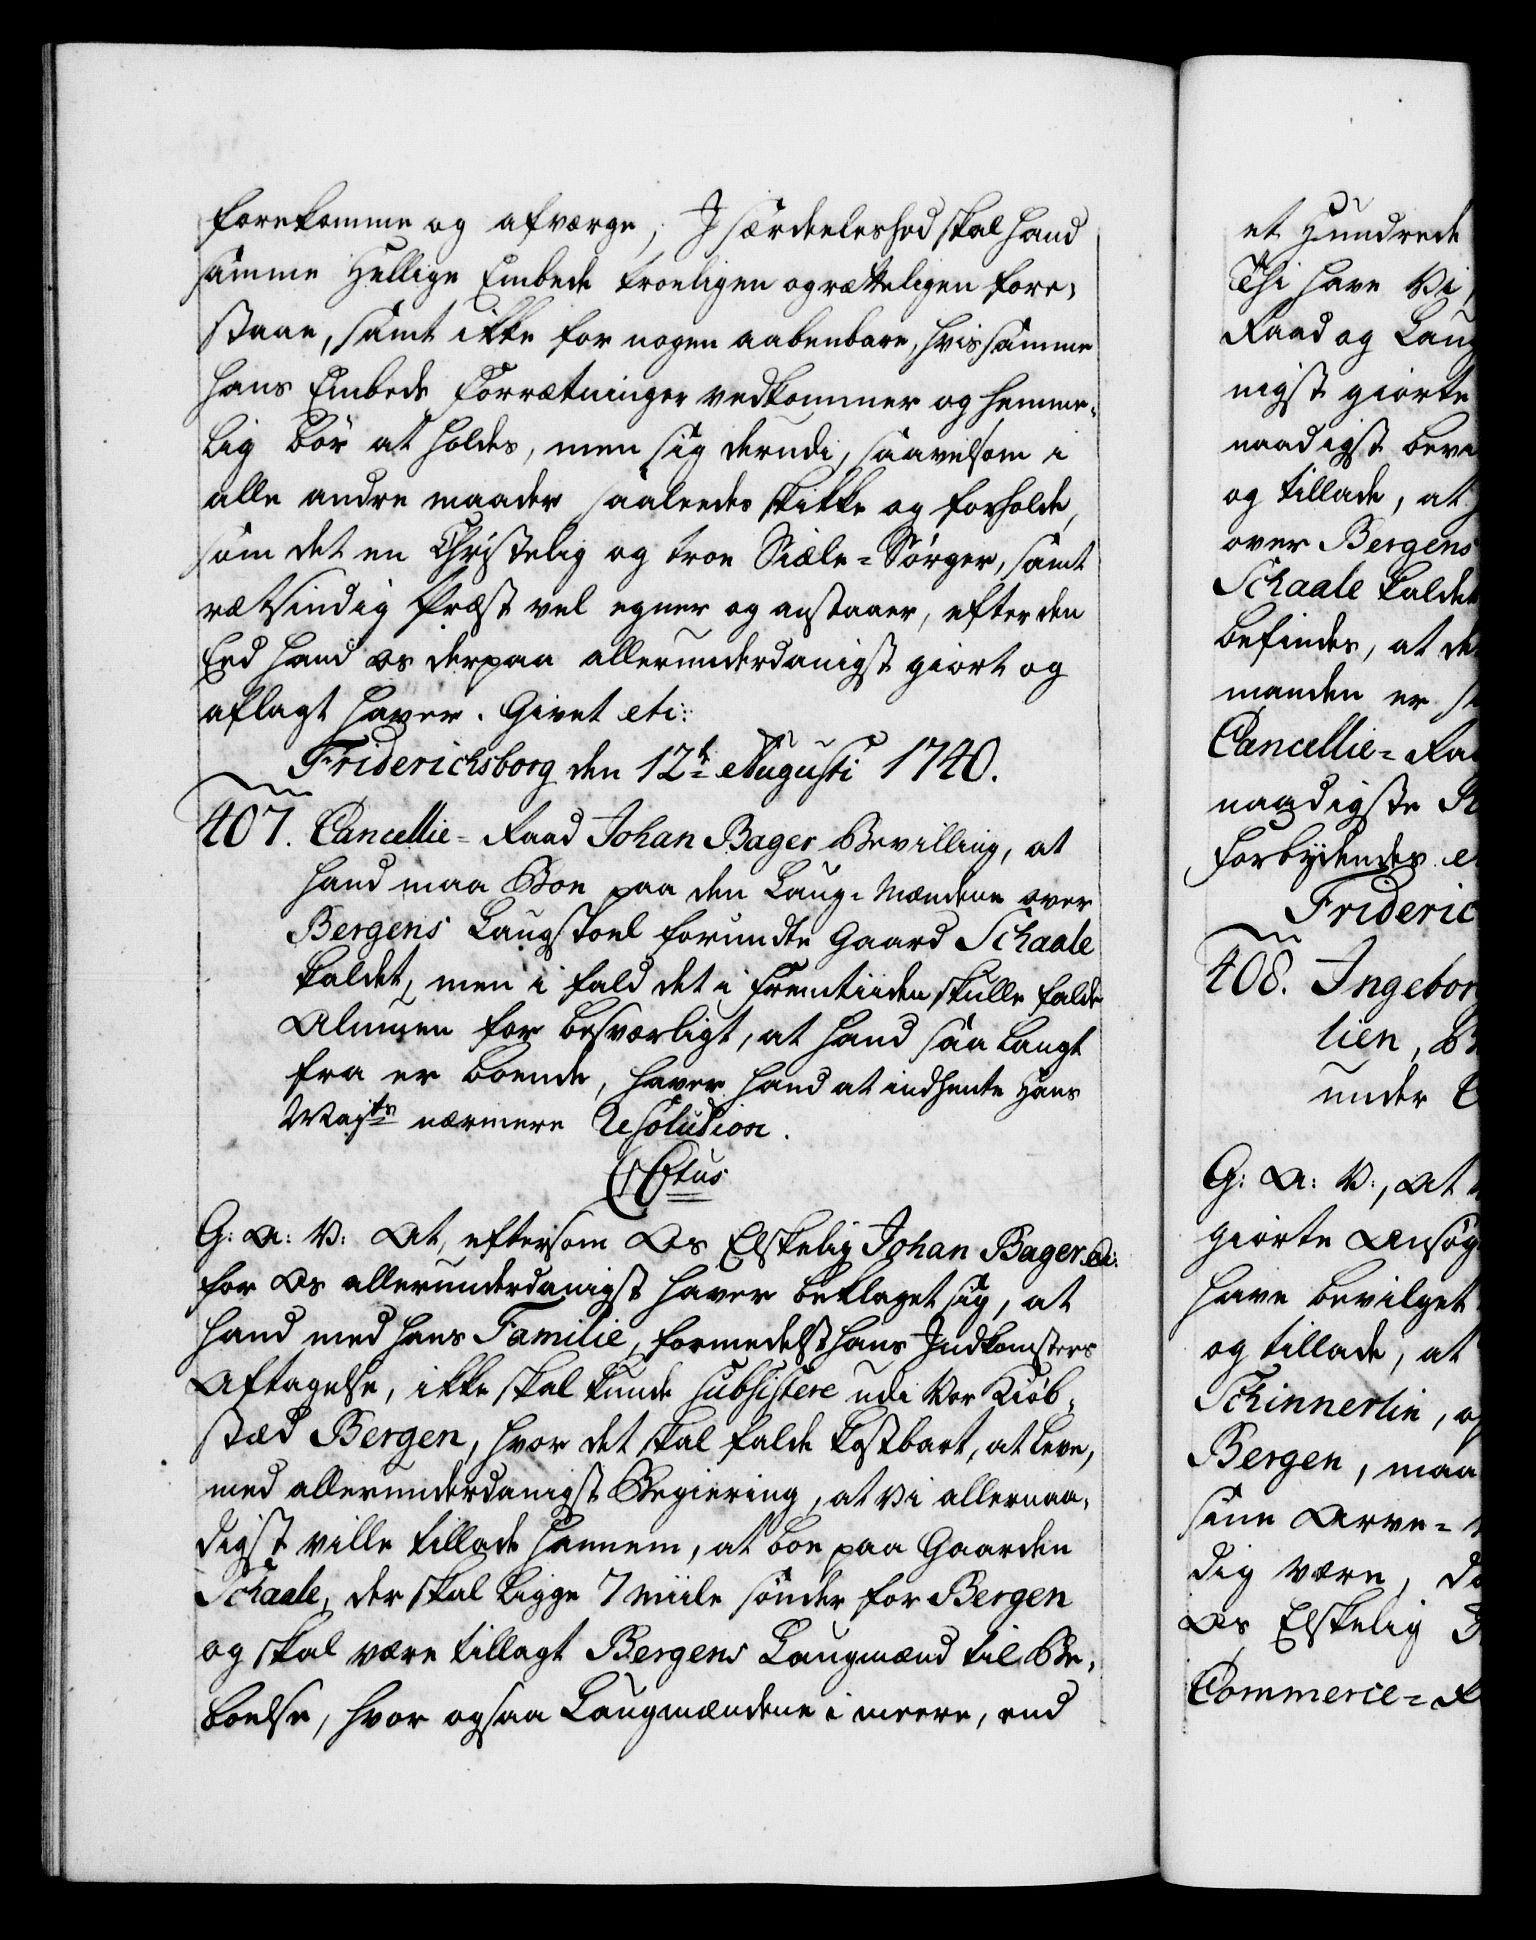 forekomme og afværge, J særdeeleshed skal hand
samme Hellige Embede troeligen og rætteligen fore-
staae, samt ikke for nogen aabenbare, hvis samme
hans Embeds Forrætninger vedkommer og hemme-
lig bör at holdes, men sig derudi, saavelsom i
alle andre maader saaleedes skikke og forholde,
som det en Christelig og troe Siæle-Sörger, samt
rætsindig Præst vel egner og anstaaer, efter den
Eed hand os derpaa allerunderdanigst giort og
aflagt haver. Givet etc:
Friderichsborg den 12te Augusti 1740.
407. Cancellie-Raad Johan Bager Bevilling, at
hand maa Boe paa den Laug-Mændene over
Bergens Laugstoel forundte Gaard Schaale
kaldet, men i fald det i Fremtiiden skulle falde
Almuen for besværligt, at hand saa langt
fra er boende, haver hand at indhente Hans
Majts nærmere Resolution.
C6tus
G: A: V: At, eftersom Os Elskelig Johan Bager etc:
for Os allerunderdanigst haver beklaget sig, at
hand med hans Familie, formedelst hans Indkomsters
Aftagelse, ikke skal kunde subsistere udi Vor Kiöb-
stæd Bergen, hvor det skal falde kostbart, at leve,
med allerunderdanigst Begiering, at Vi allernaa-
digst ville tillade hannem, at boe paa Gaarden
Schaale, der skal ligge 7 miile sönder for Bergen
og skal være tillagt Bergens Laugmænd til Be-
boelse, hvor ogsaa Laugmændene i meere, end
et Hundrede
Thi have Vi,
Raad og Laug
nigst giorte
naadigst bevi
og tillade, at
over Bergens
Schaale kaldet
befindes, at de
manden er
Cancellie-Raa
naadigste
forbydendes
Frideric
408. Ingebor
lien,
under
G: A: V:, At
giorte Ansög
have bevilget
og tillade, at
Schinnerlin,
Bergen, maa
sine Arve-
dig være,
Os Elskelig
Commerce-R